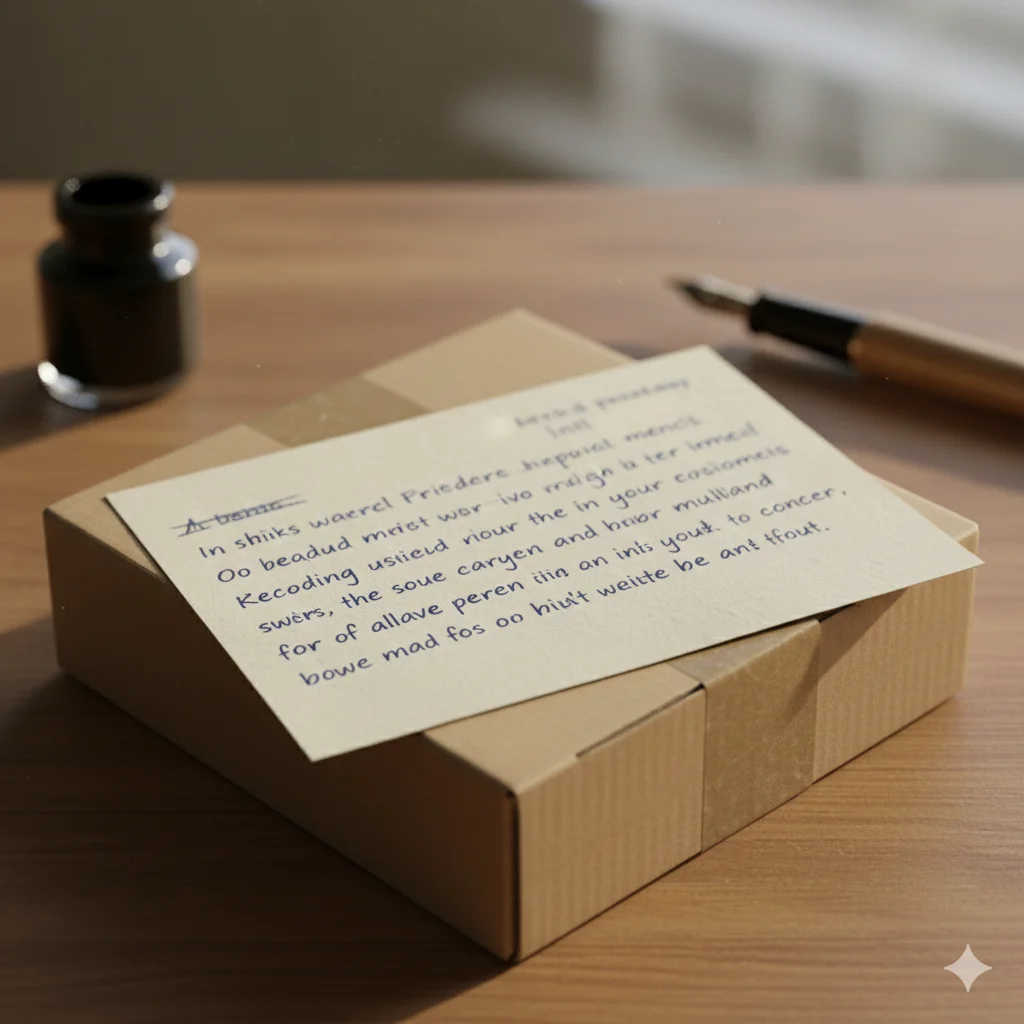 In shiiks waerel Prieders
Oo beadud mrist wor ivo rnsign is ter
Kecoding usiieud riour the in your cosiomels
swers, the soue caryen and brior mulliand
for of allave peren iiis an inis yout. to concer,
bowe mad fos oo biut't weiite be ant ffout.